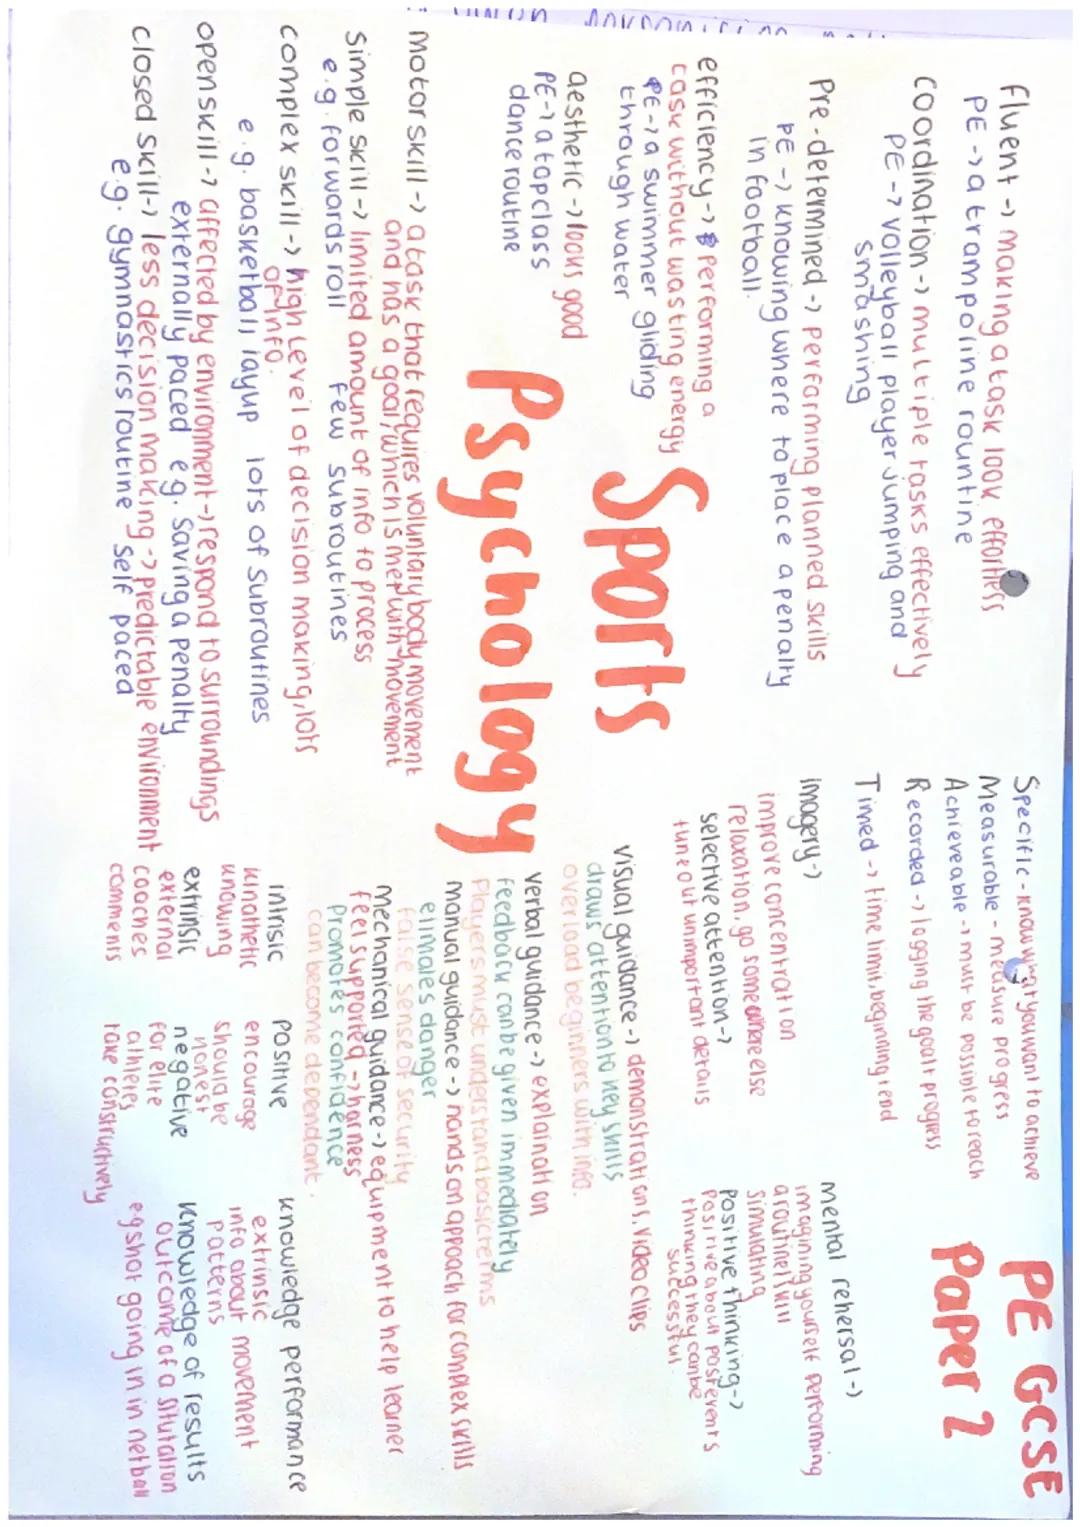 PE GCSE
Paper 2
Sports
Psychology
Fluent -> making a task look effortless
PE -> a trampoline rountine
Coordination -> multiple tasks effectively
PE -> volleyball player jumping and
smashing
Pre-determined -> performing planned skills
PE -> knowing where to place a penalty
in football.
efficiency -> performing a
task without wasting energy
PE -> a swimmer gliding
through water
aesthetic -> looks good
PE -> a top class
dance routine
motor skill -> a task that requires voluntary body movement
and has a goal, which is met with movement
Simple skill -> limited amount of info to process
e.g. forwards roll few subroutines
complex skill -> high level of decision making, lots
of info.
e.g. basketball layup lots of subroutines
open skill -> affected by environment -> respond to surroundings
externally paced eg. Saving a penalty
closed skill -> less decision making -> predictable environment
e.g. gymnastics routine self paced
Specific - know what you want to achieve
Measurable - measure progess
Achieveable -> must be possible to reach
Recorded -> logging the goals progress
Timed -> time limit, beginning + end
imagery ->
improve concentration
relaxation, go somewhere else
selective attention ->
tune out unimportant details
mental rehersal ->
imagining yourself performing
a routine/skill
simulating
positive thinking ->
positive about past events
thinking they can be
sucessful.
visual guidance -> demonstrations, video clips
draws attention to key skills
overload beginners with info.
verbal guidance -> explaination
feedback can be given immediately
Players must understand basic terms
manual guidance -> hands on appoach for complex skills
elimates danger
false sense of security
mechanical guidance -> equipment to help learner
feels supported -> harness
Promotes confidence
can become dependant.
intrisic
kinathetic
knowing
extrinsic
external
coaches
comments
positive
encourage
should be
honest
negative
for elite
athletes
take constructively
knowledge performance
extrinsic
info about movement
patterns
knowledge of results
outcome of a situtation
eg shot going in in netball